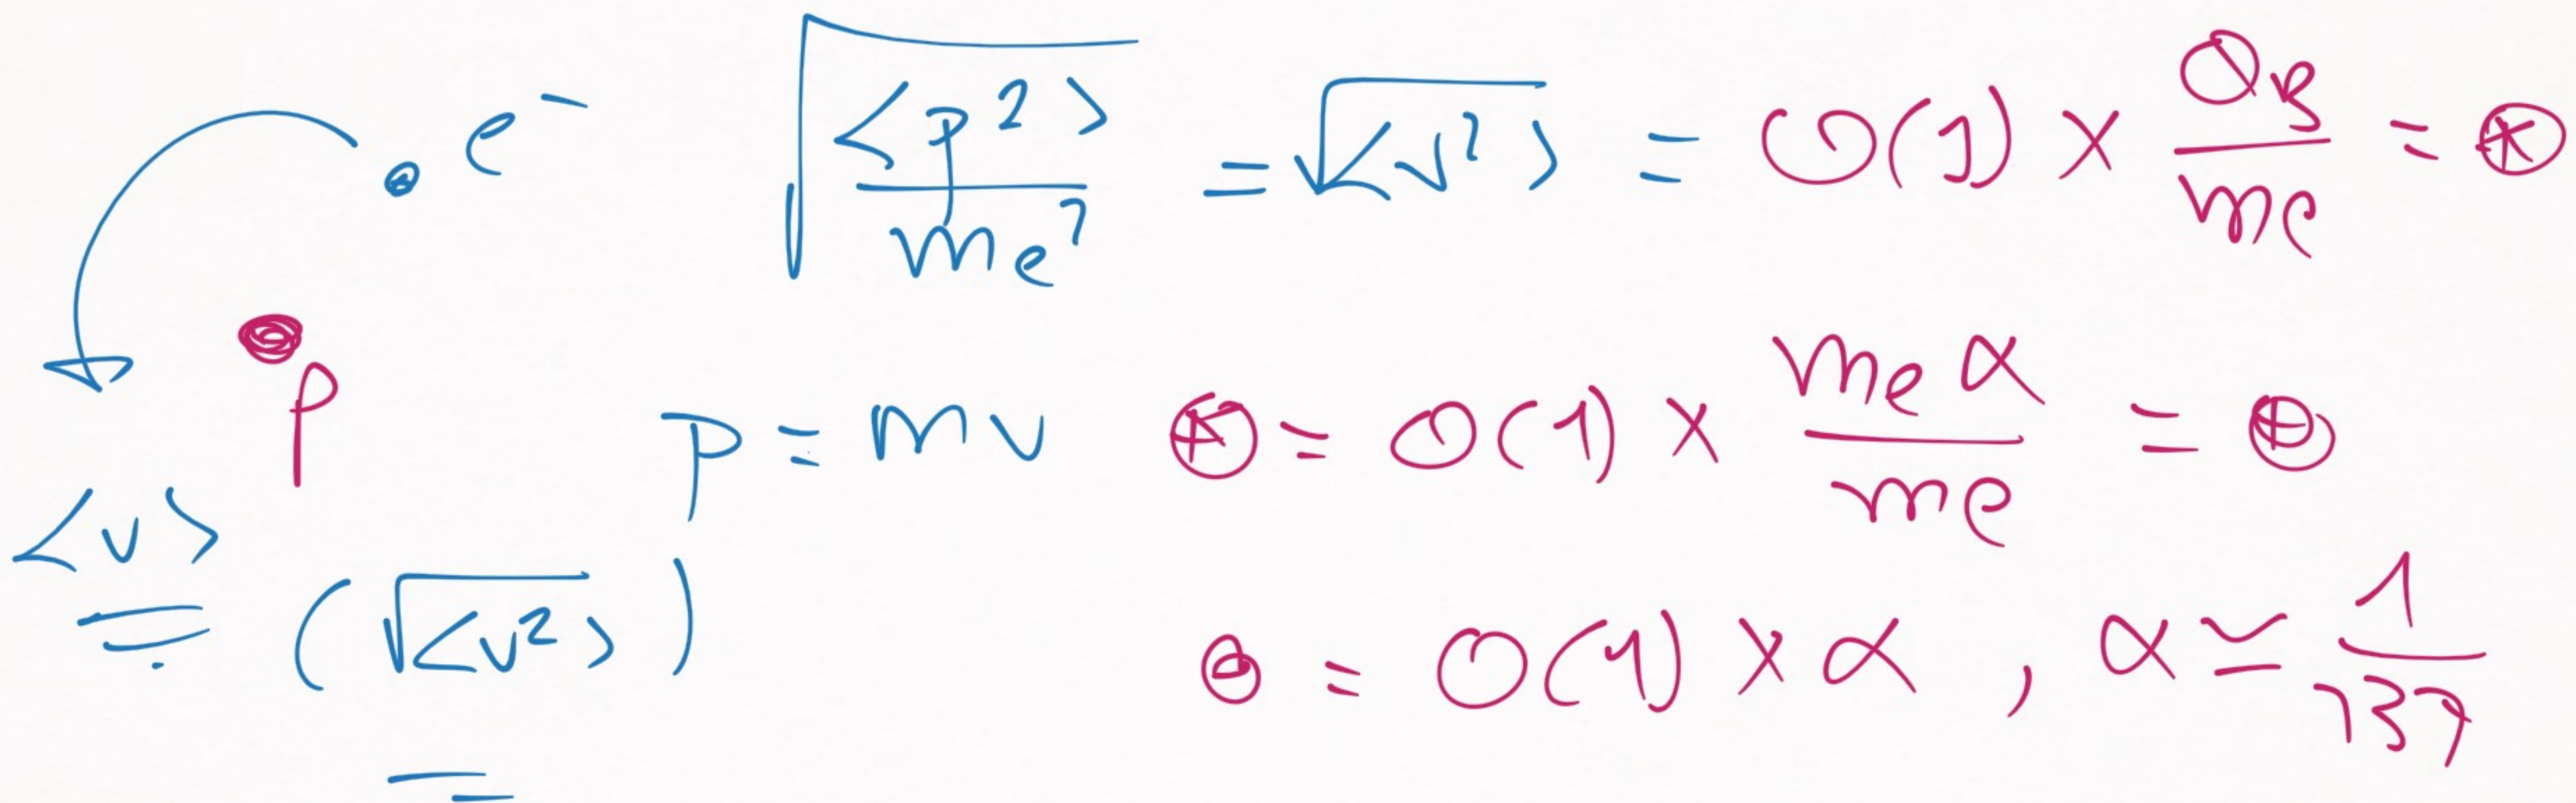 e⁻ √(<p²>/mₑ²) = √<v²> = O(1) × Q_B/mₑ = ⊛
p
p = mv ⊛ = O(1) × mₑα/mₑ = ⊕
<v>
(√<v²>)
⊖ = O(1) × α , α ≃ 1/137